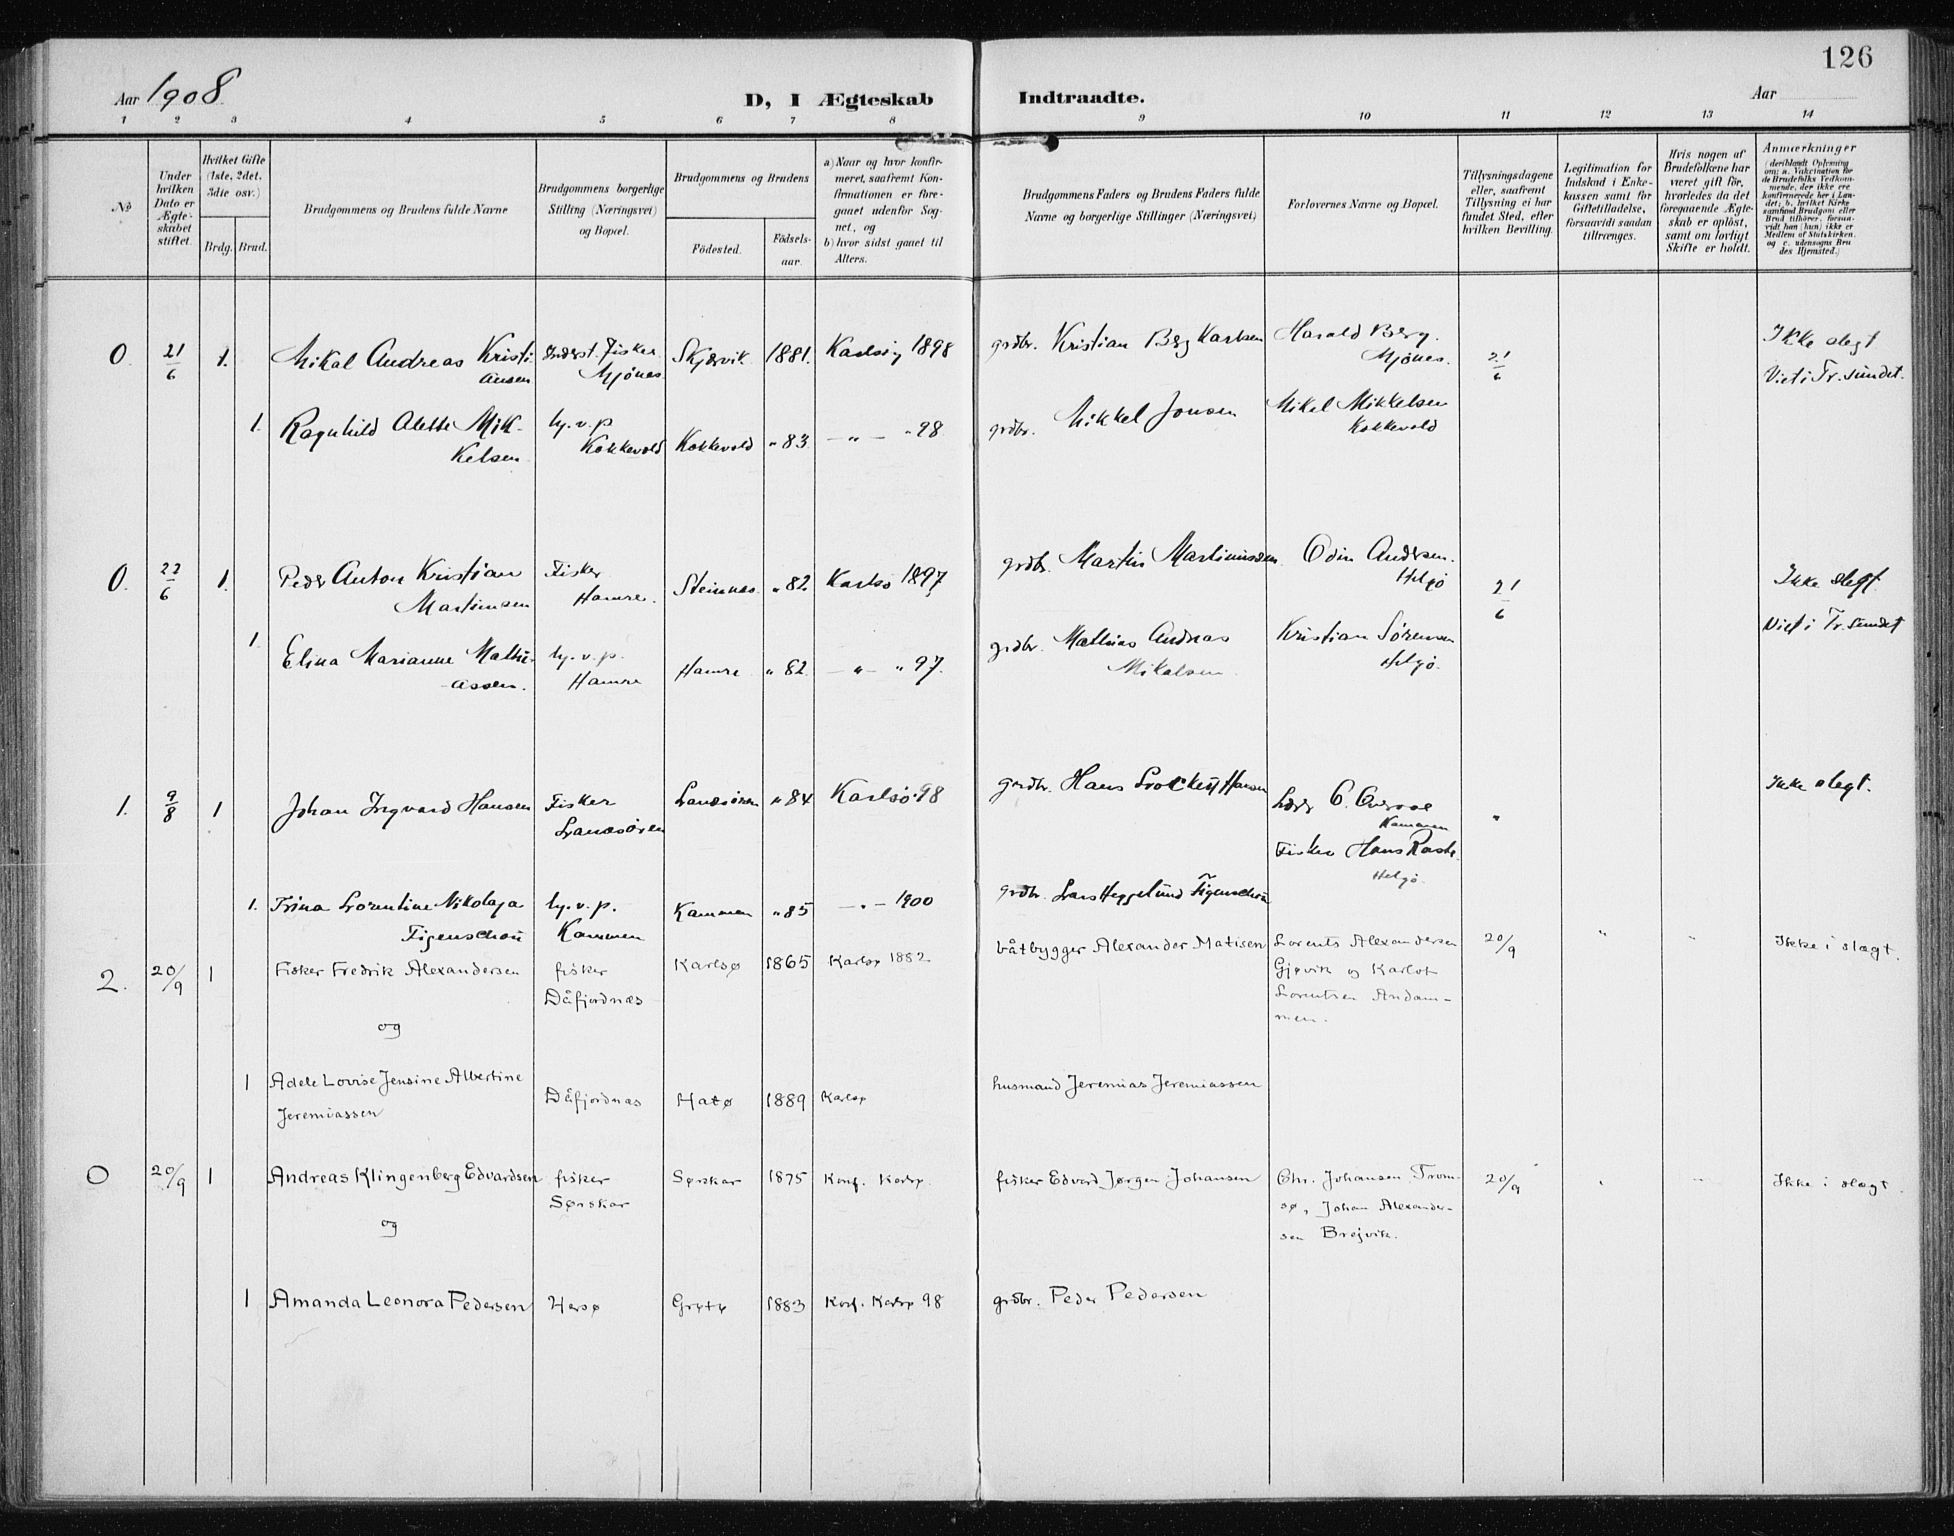 126
Aar 1908
D, I Ægteskab Indtraadte.
Aar
1 2 3 4 5 6 7 8 9 10 11 12 13 14
No
Under hvilken Dato er Ægteskabet stiftet.
Hvilket Gifte (1ste, 2det, 3dte osv.)
Brdg. Brud.
Brudgommens og Brudens fulde Navne
Brudgommens borgerlige Stilling (Næringsvei) og Bopæl.
Brudgommens og Brudens
Fødested.
Fødselsaar.
a) Naar og hvor konfirmeret, saafremt Konfirmationen er foregaaet udenfor Sognet, og
b) hvor sidst gaaet til Alters.
Brudgommens Faders og Brudens Faders fulde Navne og borgerlige Stillinger (Næringsvei)
Forlovernes Navne og Bopæl.
Tillysningsdagene eller, saafremt Tillysning ei har fundet Sted, efter hvilken Bevilling.
Legitimation for Indskud i Enkekassen samt for Giftetilladelse, forsaavidt saadan tiltrænges.
Hvis nogen af Brudefolkene har været gift før, hvorledes da det foregaaende Ægteskab er opløst, samt om lovligt Skifte er holdt.
Anmærkninger
(deriblandt Oplysning om: a. Vakcination for de Brudefolks Vedkommende, der ikke ere konfirmerede her i Landet; b. hvilket Kirkesamfund Brudgom eller Brud tilhører, forsaavidt han (hun) ikke er Medlem af Statskirken, og c. udensogns Brudes Hjemsted.)
0. 21/6 1. Mikal Andreas Kristiansen
Fisker Mjønes Skjærvik 1881. Karlsøy 1898
grdbr. Kristian Berg Karlsen
Harald Berg. Mjönes.
21/6
Ikke slegt
Viet i Tr. sundet.
1. Ragnhild Alette Mikkelsen
hj. v. p. Kokkevold Kokkevold " 83. — " — " 98.
grdbr. Mikkel Jonsen
Mikal Mikkelsen Kokkevold
0. 22/6 1. Peder Anton Kristian Martinsen
Fisker Hamre. Steinnes. " 82. Karlsø 1897
grdbr. Martin Martinussen
Odin Andersen. Helgö
21/6
Ikke slegt.
Viet i Tr. sundet
1. Elina Marianne Mathiassen.
hj. v. p. Hamre Hamre. " 82. — " — " 97.
grdbr. Mathias Andreas Mikalsen.
Kristian Sörensen Helgö.
1. 9/8 1 Johan Ingvard Hansen
Fisker Lanesören Lanesören " 84 Karlsö 98
grdbr. Hans Hansen
Lærer O. Kammen
Fisker Hans Helgö.
"
Ikke slegt.
1. Trina Lorentine Nikolaja Figenschou
hj. v. p. Kammen Kammen " 85 — " — 1900
grdbr. Lars Heggelund Figenschou
2. 20/9 1 Fisker Fredrik Alexandersen
fisker Dåfjordnæs Karlsø 1865 Karlsø 1882
båtbygger Alexander Matisen
Lorents Alexandersen
Gjøvik og Karlot
Lorentsen Andammen.
20/9 " "
Ikke i slægt.
og
1 Adele Lovise Jensine Albertine Jeremiassen
Dåfjordnæs Hatø 1889 Karlsø
husmand Jeremias Jeremiassen
0 20/9 1 Andreas Klingenberg Edvardsen
fisker Sørskar Sørskar 1875 Konf. Karlsø.
fisker Edvard Jørgen Johansen
Chr. Johansen Tromsø, Johan Alexandersen Brejvik.
20/9 " "
Ikke i slægt.
og
1 Amanda Leonora Pedersen
Hersø Grøtø 1883 Konf. Karlsø 98
grdbr. Peder Pedersen